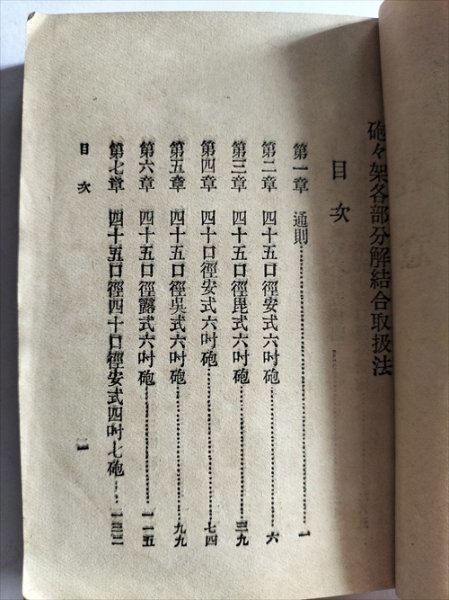 砲々架各部分解結合取扱法
目次
第一章 通則……一
第二章 四十五口徑安式六吋砲……六
第三章 四十五口徑毘式六吋砲……三九
第四章 四十口徑安式六吋砲……七四
第五章 四十五口徑吳式六吋砲……九九
第六章 四十五口徑露式六吋砲……一一五
第七章 四十五口徑四十口徑安式四吋七砲……一三二
目次 一